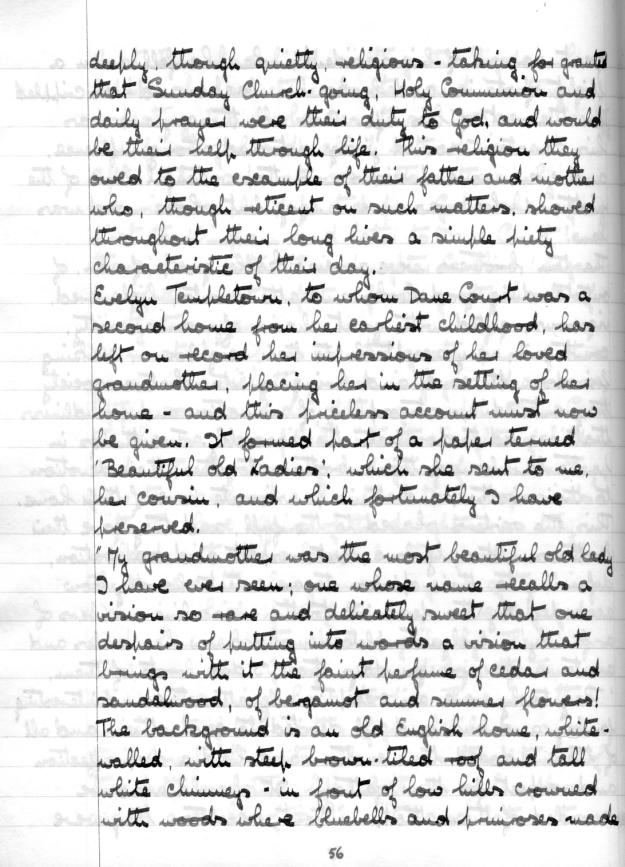 deeply, though quietly, religious - taking for granted
that Sunday Church-going, Holy Communion and
daily prayer were their duty to God, and would
be their help through life. This religion they
owed to the example of their father and mother
who, though reticent on such matters, showed
throughout their long lives a simple piety
characteristic of their day.
Evelyn Templetown, to whom Dane Court was a
second home from her earliest childhood, has
left on record her impressions of her loved
grandmother, placing her in the setting of her
home - and this priceless account must now
be given. It formed part of a paper termed
'Beautiful old Ladies', which she sent to me,
her cousin, and which fortunately I have
preserved.
"My grandmother was the most beautiful old lady
I have ever seen; one whose name recalls a
vision so rare and delicately sweet that one
despairs of putting into words a vision that
brings with it the faint perfume of cedar and
sandalwood, of bergamot and summer flowers!
The background is an old English home, white-
walled, with steep brown-tiled roof and tall
white chimneys - in front of low hills crowned
with woods where bluebells and primroses made
56